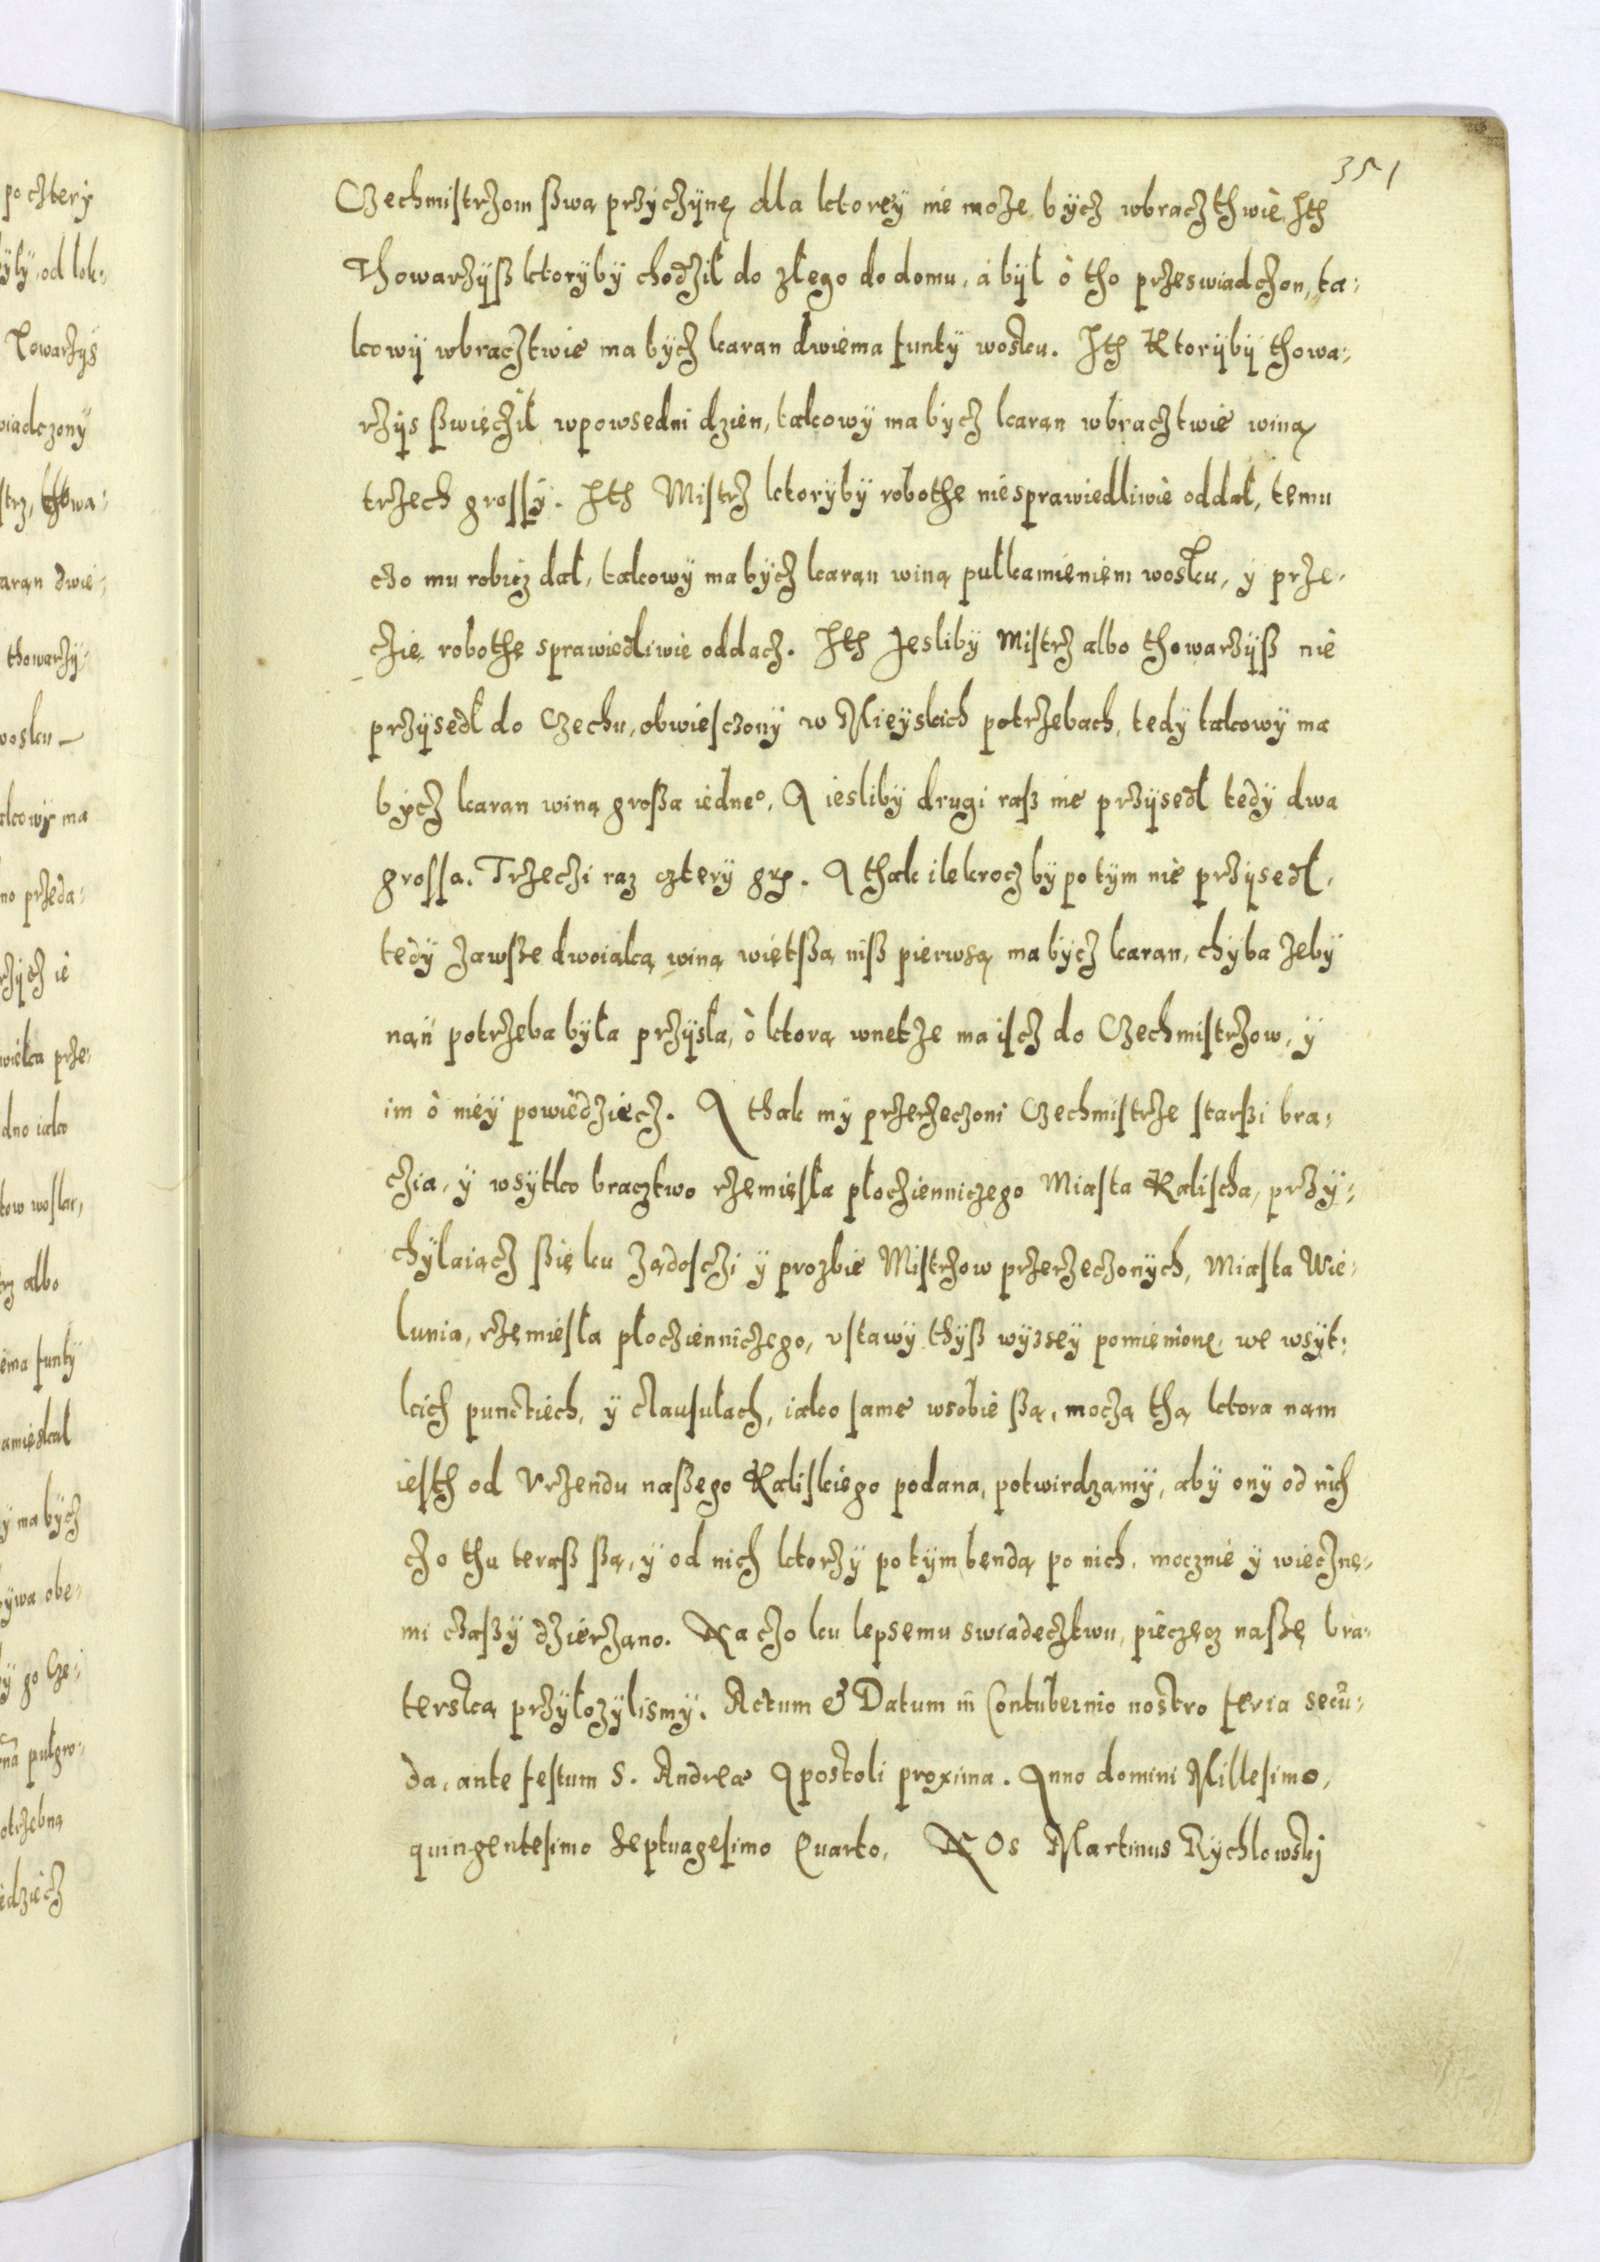 351
Czechmistrzom sswą przyczynę dla ktorey nie może bycz wbraczthwie Ith
Thowarzyß ktoryby chodził do złego do domu, á był ò tho przeswiadczon, ta:
kowy wbracztwie ma bycz karan dwiema funty wosku. Ith Ktoryby thowa:
rzys ßwięcził wpowsedni dzien, takowy ma bycz karan wbracztwie winą
trzech grossy. Ith Mistrz ktoryby robothe niesprawiedliwie oddał, temu
czo mu robicz dał, takowy ma bycz karan winą pułkamieniem wosku, y prze-
czię robothę sprawiedliwie oddacz. Ith Jesliby Mistrz albo thowarzyß nie
przysedł do Czechu, obwiesczony w Mieyskich potrzebach, tedy takowy ma
bycz karan winą großa iedneo, A iesliby drugi raß nie przysedł tedy dwa
grossa. Trzeczi raz cztery grß. A thak ilekrocz by potym nie przysedł,
tedy zawße dwoiaką winą wietßą niß pierwsą ma bycz karan, chyba zeby
nań potrzeba była przysła, ò ktorą wnetze ma iscz do Czechmistrzow, y
im ò niey powiedziecz. A thak my przerzeczoni Czechmistrze starßi bra:
czia, y wsytko bracztwo rzemiesła płoczienniczego Miasta Kalischa, przy:
chylaiącz ßię ku żądosczi y prozbie Mistrzow przerzeczonych, Miasta Wie:
lunia, rzemiesła płoczienniczego, vstawy thyß wyzsey pomienione, we wsyt:
kich punctiech, y clausułach, iako same wsobie ßą, moczą thą ktora nam
iesth od Vrzendu naßego Kaliskiego podana, potwirdzamy, aby ony od nich
czo thu teraß ßą, y od nich ktorzy potym bendą po nich, mocznie y wieczne-
mi czaßy dzierżano. Na czo ku lepsemu swiadecztwu, pieczęcz naßę bra:
terską przyłozylismy. Actum & Datum in Contubernio nostro feria secū:
da, ante festum S. Andreæ Apostoli proxima. Anno domini Millesimo,
quingentesimo Septuagesimo Quarto, Nos Martinus Rychlowskj